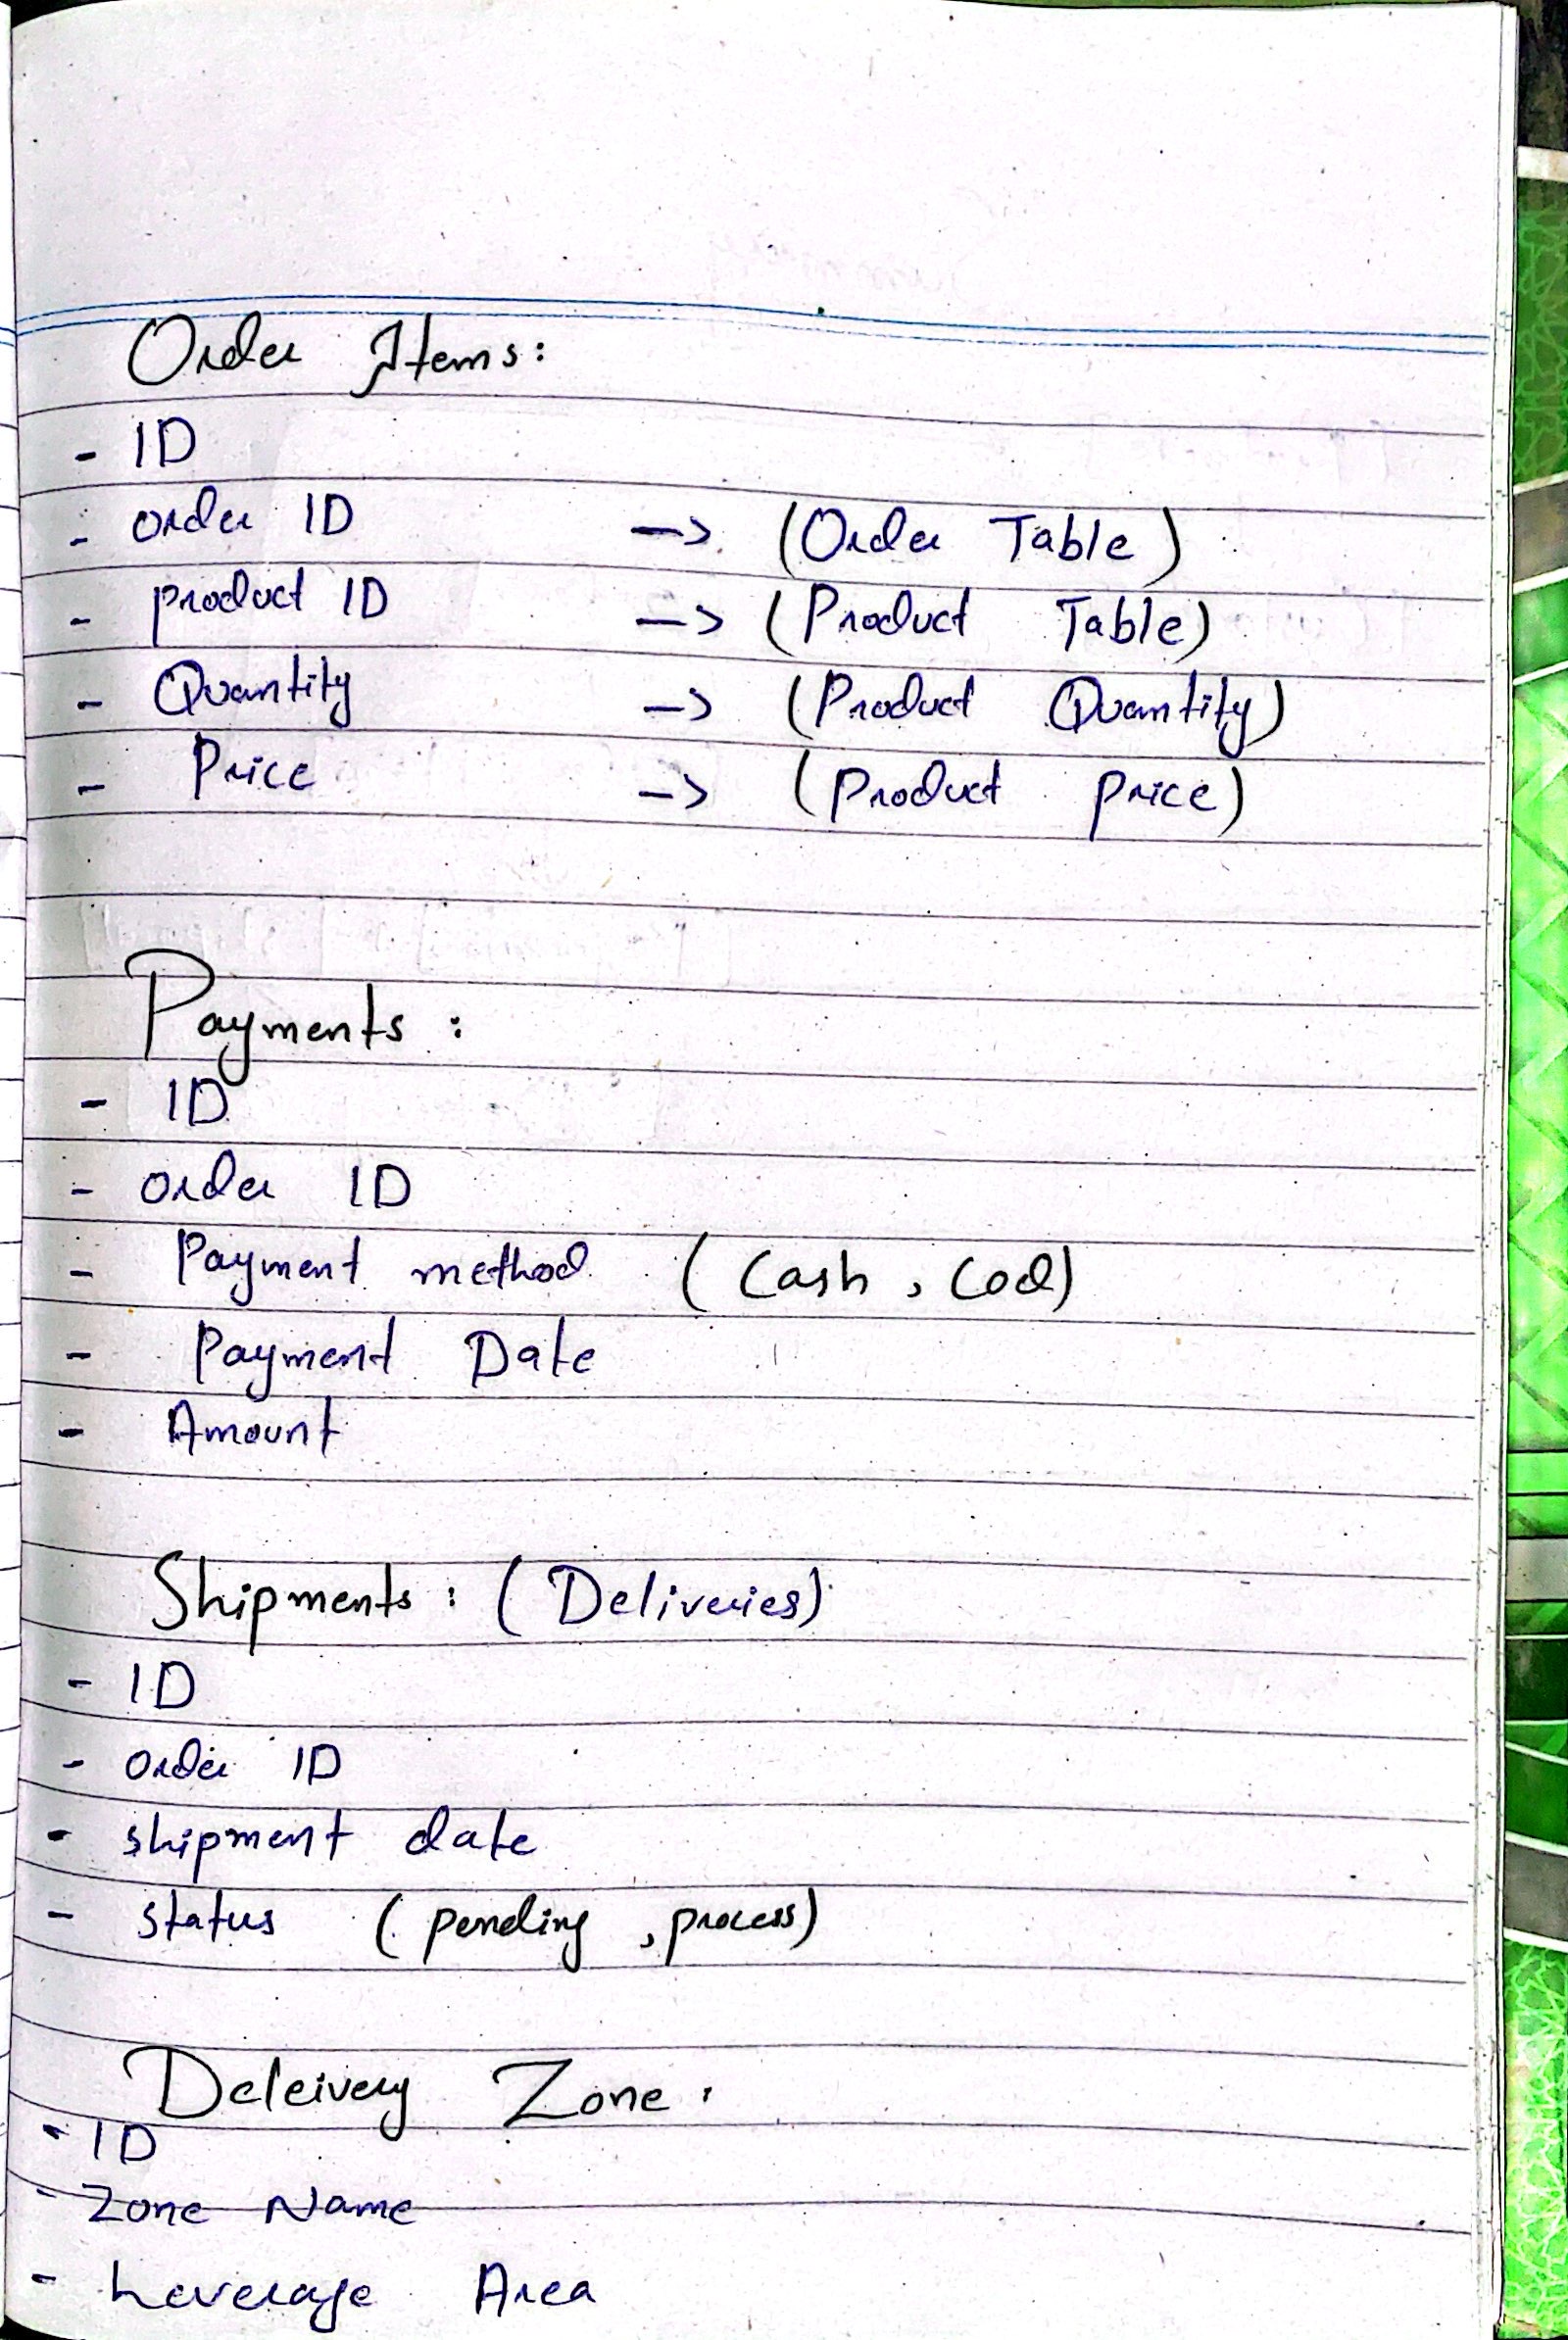 Order Items:
- ID
- order ID -> (Order Table)
- product ID -> (Product Table)
- Quantity -> (Product Quantity)
- Price -> (Product price)
Payments :
- ID
- order ID
- Payment method (Cash, Cod)
- Payment Date
- Amount
Shipments : (Deliveries)
- ID
- order ID
- shipment date
- status (pending, process)
Deleivery Zone :
- ID
- Zone Name
- Area